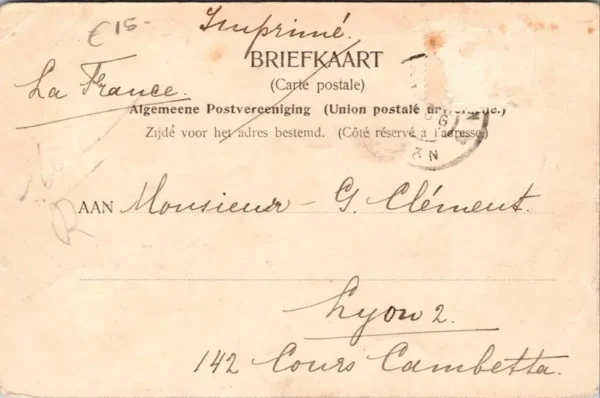 € 15-
Imprimé.
BRIEFKAART
(Carte postale)
La France.
Algemeene Postvereeniging (Union postale universelle.)
Zijde voor het adres bestemd. (Côté réservé à l'adresse)
AAN Monsieur - G. Clément.
Lyon 2.
142 Cours Cambetta.